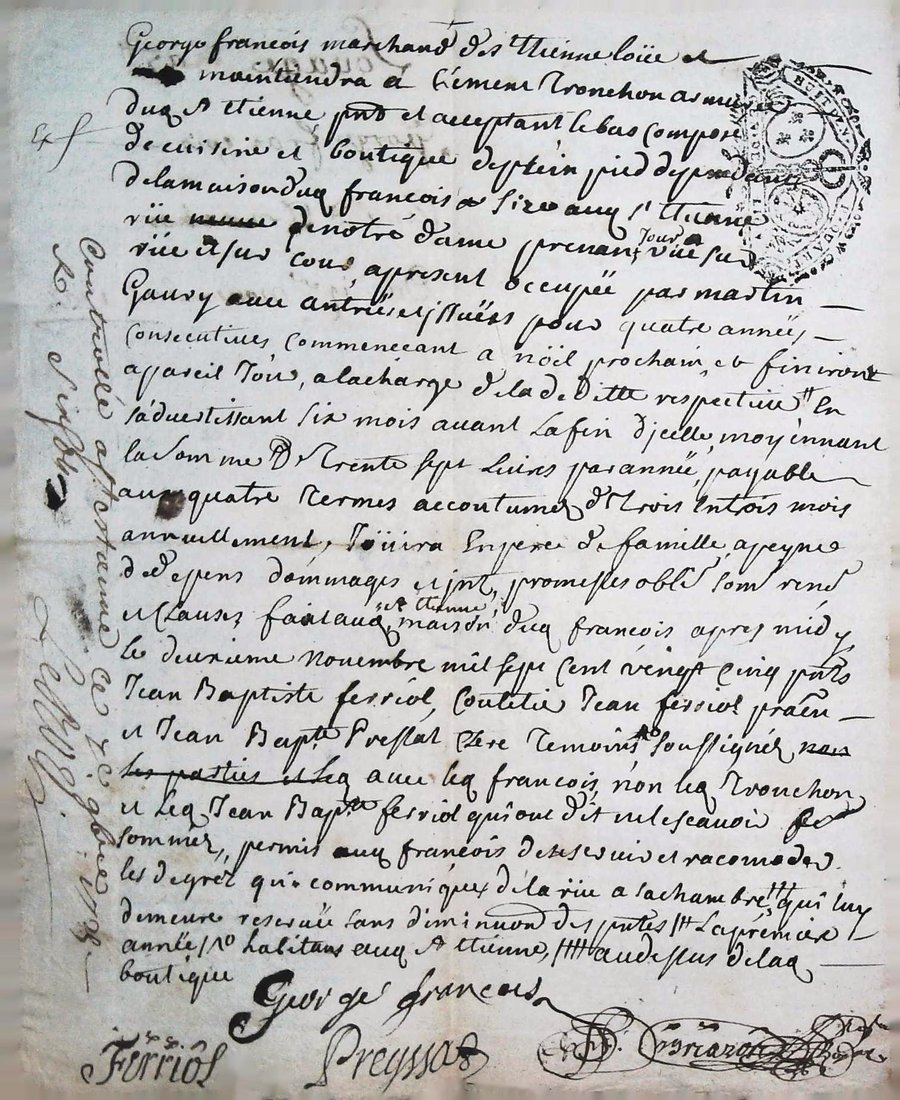 George francois marchand de st Etienne loüe et
maintiendra a Clement Tronchon armurier
duq st Etienne pnt et acceptant le bas composé
de cuisine et boutique de plein pied dependant
de la maison duq francois size auq st Etienne
rüe neuve de notre dame prenant Jour, vüe sur
rüe et sur cour apresent occupée par martin
Gaury avec antrües et jssües pour quatre années
consecutives commencant a nöel prochain et finiront
a pareil Jour, a la charge de la deditte respective En
s'advertissant six mois avant la fin d'jcelle, moyennant
la somme De Trente sept Livres par année, payable
aux quatre termes accoutumez de Trois En trois mois
annuellement, Joüira En pere de famille a peyne
de depens dommages et jnt, promesses oblé som renō
et clauses fait auq st Etienne, maison duq francois apres midy
le deuxieme novembre mil sept cent vingt cinq pnts
Jean Baptiste ferriol, Jean ferriol praēn
et Jean Bapte Pressat Clere temoins soussignéz non
les parties et leq avec leq francois, non leq Tronchon
et leq Jean Bapte ferriol qui ont dit ne le scavoir
sommez, permis auq francois de se servir et racomoder
les degrez qui communiquex de la rüe a sa chambre qui luy
demeure reservée sans diminuon des pntes la premiere
année habitans auq st Etienne, au dessus de laq
boutique
George francois
Ferriol
Preyssat
Controllé a st Estienne ce 1725
R. six sols
HUIT DEN